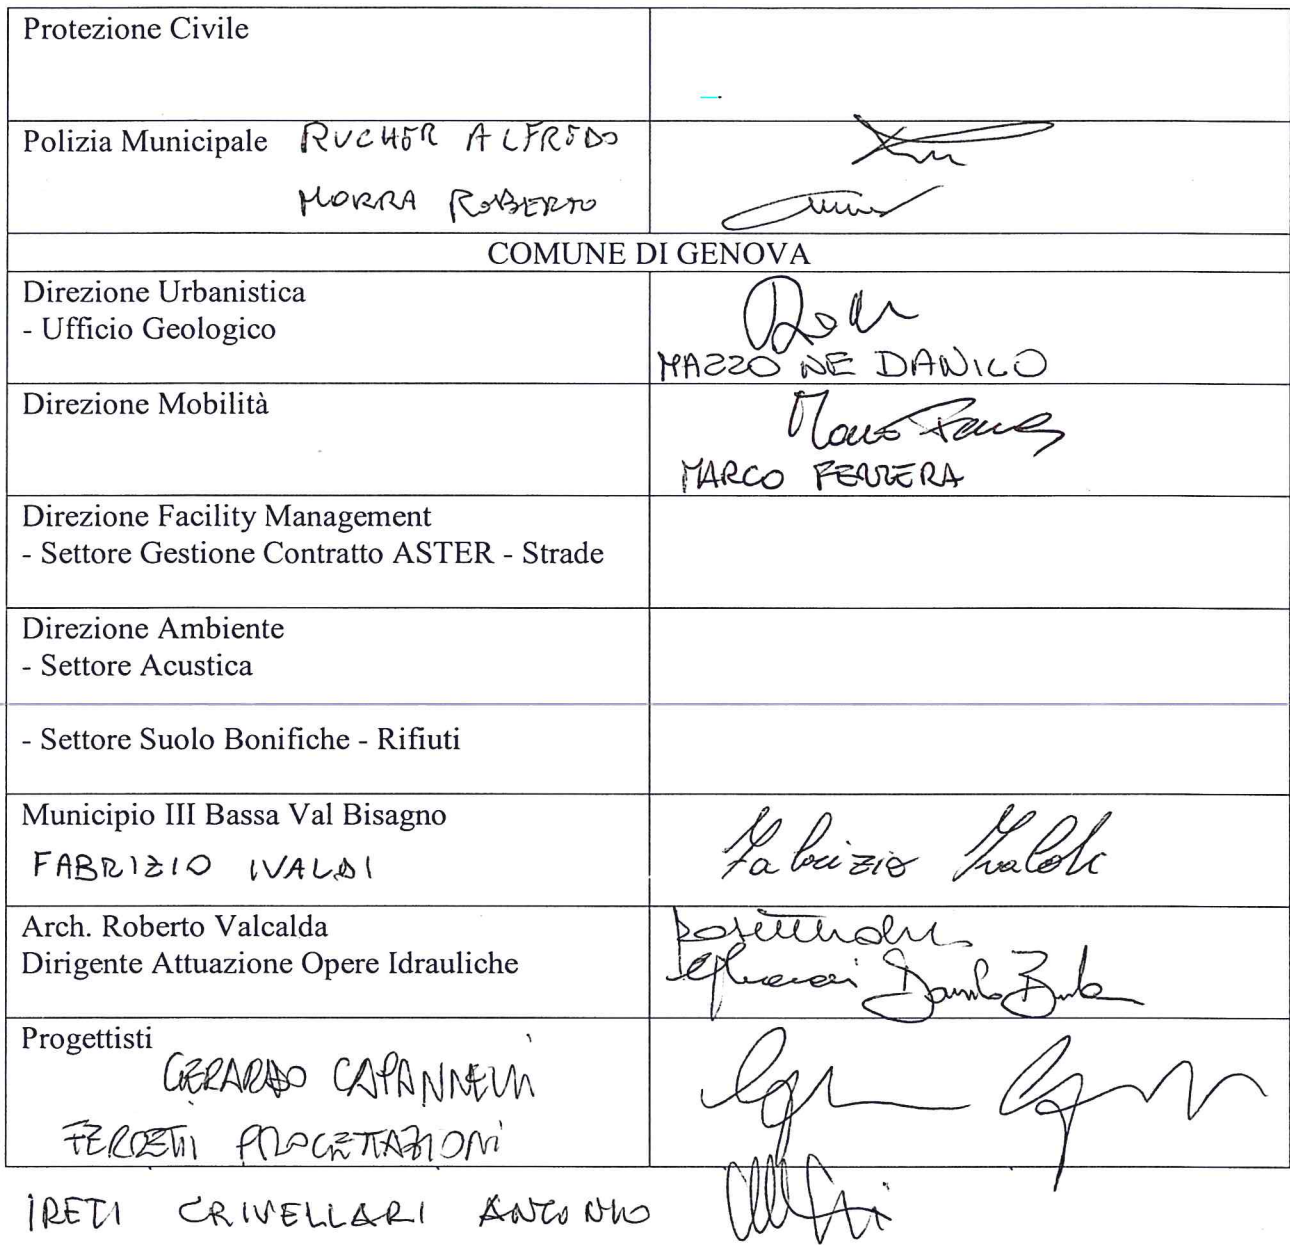 Protezione Civile
Polizia Municipale RUCHER ALFREDO
MORRA ROBERTO
COMUNE DI GENOVA
Direzione Urbanistica
- Ufficio Geologico
MAZZONE DANILO
Direzione Mobilità
MARCO FERRERA
Direzione Facility Management
- Settore Gestione Contratto ASTER - Strade
Direzione Ambiente
- Settore Acustica
- Settore Suolo Bonifiche - Rifiuti
Municipio III Bassa Val Bisagno
FABRIZIO IVALDI Fabrizio Ivaldi
Arch. Roberto Valcalda
Dirigente Attuazione Opere Idrauliche
Progettisti
GERARDO CAPANNELLI
FERRETTI PROGETTAZIONI
IRETI CRIVELLARI ANTONIO